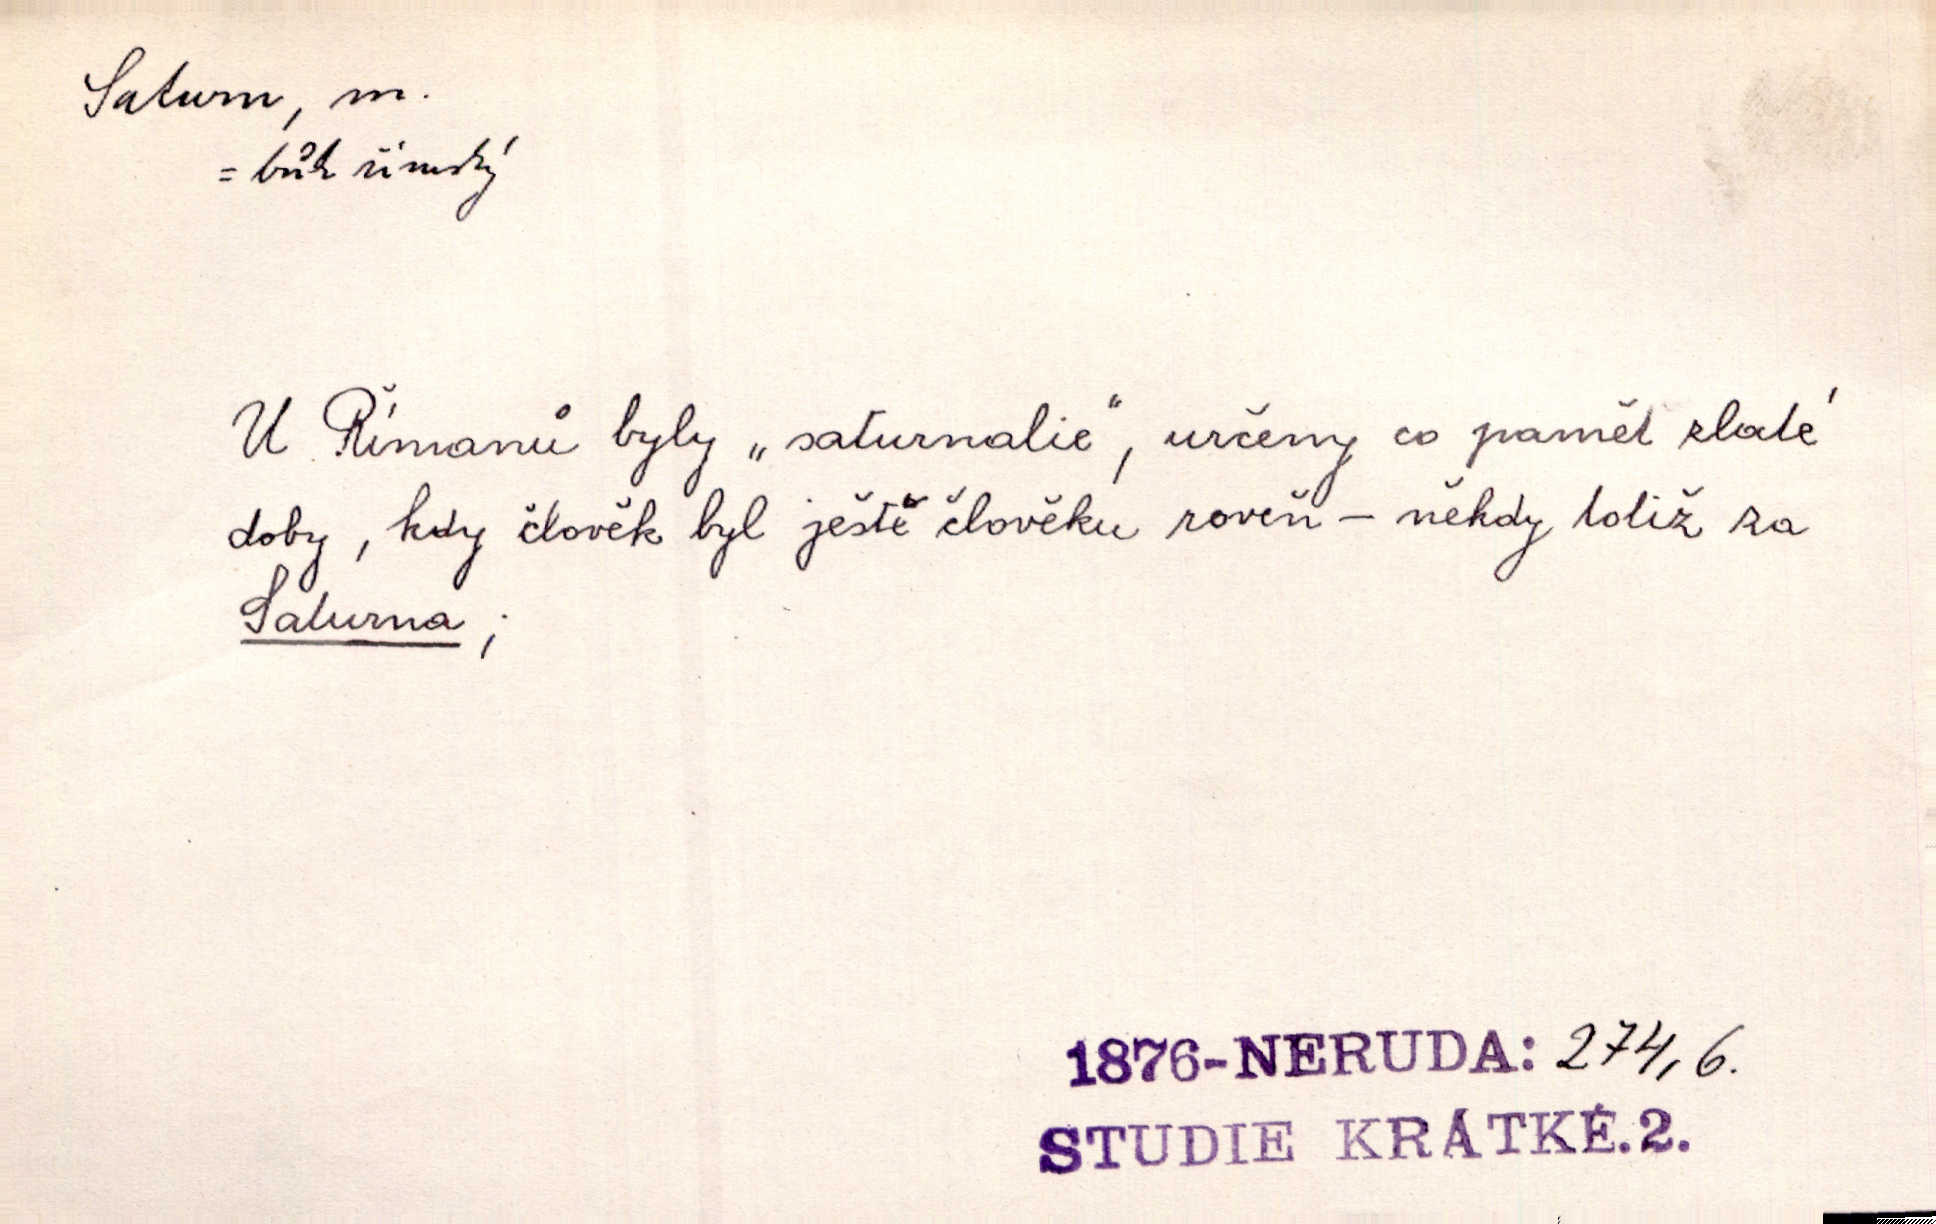 Saturn, m.
= bůh římský
U Římanů byly „saturnalie“, určeny co paměť zlaté
doby, kdy člověk byl ještě člověku roveň – někdy totiž za
Saturna;
1876-NERUDA: 274, 6.
STUDIE KRÁTKÉ.2.